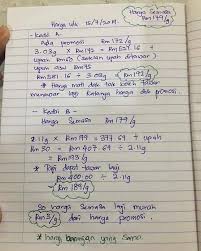 Harga Semasa
RM 179/g
Harga utk 15/7/2019
- Kedai A
* Ada promosi RM 172/g
3.03g x RM 172 = RM 521.16 +
Upah RM60 (setelah upah ditawar)
Upah asal RM95
RM 581.16 ÷ 3.03g = RM 192/g
* Harga mati dah tak boleh tawar
lagi katanya harga dah promosi.
- Kedai B -
Harga Semasa RM 179/g
2.11g x RM 179 = 377.69 + upah
RM 30 = RM 407.69 ÷ 2.11g
= RM 193/g
* Tapi dapat tawar lagi
RM 400.00 ÷ 2.11g
= RM 189/g
So harga semasa lagi murah
RM 3/g dari harga promosi.
* harga barangan yang sama.